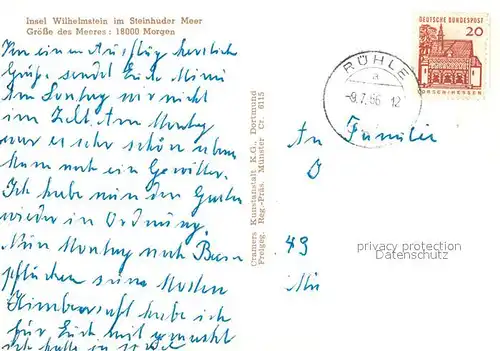 Insel Wilhelmstein im Steinhuder Meer
Größe des Meeres: 18000 Morgen
Von einem Ausflug herzliche
Grüße sendet Euch Mimi
Am Sontag wir nicht
im Zelt. Am Montag
war es sehr schön aber
kam noch ein Gewitter.
Ich habe nun den Garten
wieder in Ordnung.
Nun Montag noch
pflücken
Himbersaft habe ich
für Euch mit gemacht
Cramers Kunstanstalt K.G., Dortmund
Freigeg. Reg.-Präs. Münster Cr. 6115
DEUTSCHE BUNDESPOST
20
LORSCH/HESSEN
RÜHLE
a
-9.7.66 12
An Familie
D
49
privacy protection
Datenschutz